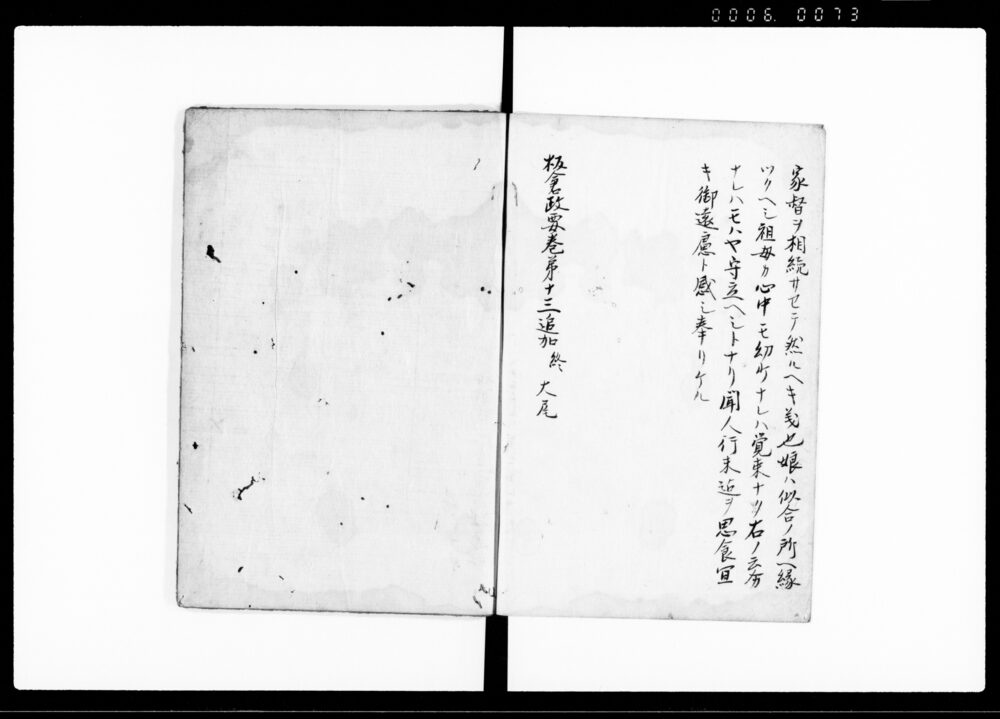 0006. 0073
家督ヲ相続サセテ然ルヘキ義也娘ハ似合ノ所ヘ縁
ツクヘシ祖母カ心中モ幼少ナレハ覚束ナク右ノ
ナレハモハヤ守立ヘシトナリ聞人行末迄ヲ思食宜
キ御遠慮ト感シ奉リケル
板倉政要巻第十三追加終 大尾